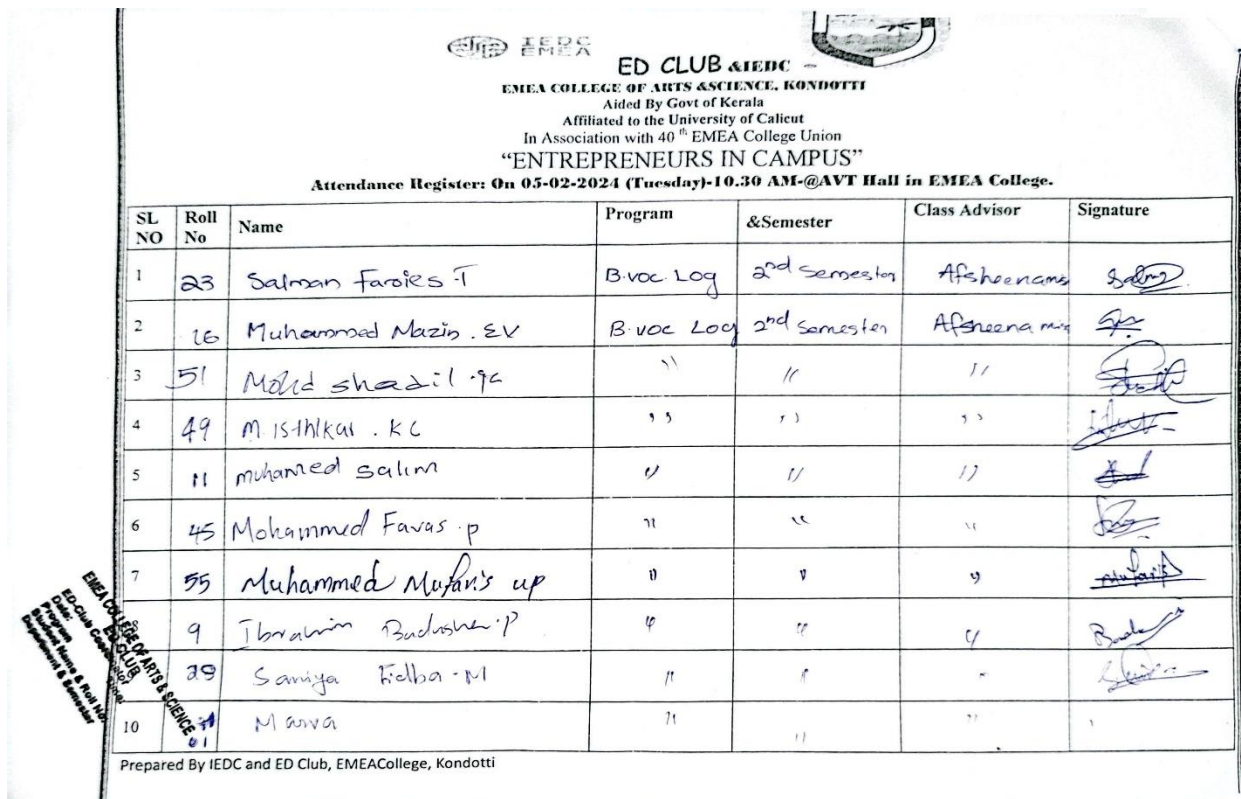 IEDC
EMEA
ED CLUB &IEDC
EMEA COLLEGE OF ARTS &SCIENCE, KONDOTTI
Aided By Govt of Kerala
Affiliated to the University of Calicut
In Association with 40 th EMEA College Union
"ENTREPRENEURS IN CAMPUS"
Attendance Register: On 05-02-2024 (Tuesday)-10.30 AM-@AVT Hall in EMEA College.
SL NO Roll No Name Program &Semester Class Advisor Signature
1 23 Salman Faroies T B.voc. Log 2nd Semester Afsheena
2 16 Muhammed Mazin . EV B.voc Log 2nd Semester Afsheena
3 51 Mohd shadil " " "
4 49 M Isthikar . KC " " "
5 11 muhamed salim " " "
6 45 Mohammed Favas . p " " "
7 55 Muhammed Mufaris up " " " Mufaris
9 Ibrahim Badusha . P " " "
29 Saniya Fidba . M " " "
10 Marva " " "
EMEA COLLEGE OF ARTS & SCIENCE
ED-CLUB
ED-Club Coordinator
Date:
Program
Student Name & Roll No:
Department & Semester
Prepared By IEDC and ED Club, EMEACollege, Kondotti